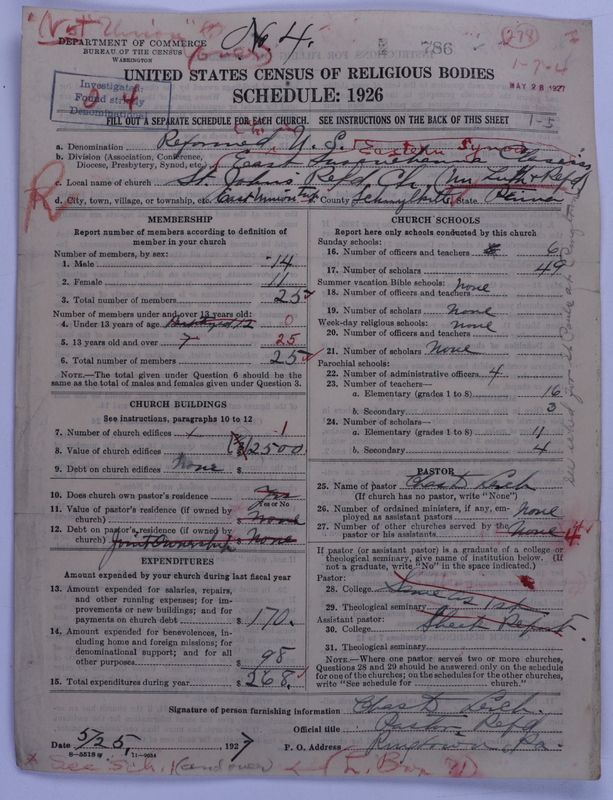 "Not Union"
No 4.
786
(278)
1-7-4
DEPARTMENT OF COMMERCE
BUREAU OF THE CENSUS
WASHINGTON
UNITED STATES CENSUS OF RELIGIOUS BODIES
SCHEDULE: 1926
MAY 28 1927
Investigated:
Found strictly
Denominational
1-5
FILL OUT A SEPARATE SCHEDULE FOR EACH CHURCH. SEE INSTRUCTIONS ON THE BACK OF THIS SHEET
a. Denomination Reformed, U. S. Eastern Synod
b. Division (Association, Conference, Diocese, Presbytery, Synod, etc.) East Susquehanna Classis
c. Local name of church St. Johns Refd Ch. Un. Luth & Refd
d. City, town, village, or township, etc. East Union County Schuylkill State Penna
MEMBERSHIP
Report number of members according to definition of member in your church
Number of members, by sex:
1. Male 14
2. Female 11
3. Total number of members 25
Number of members under and over 13 years old:
4. Under 13 years of age 0
5. 13 years old and over 25
6. Total number of members 25
NOTE.—The total given under Question 6 should be the same as the total of males and females given under Question 3.
CHURCH BUILDINGS
See instructions, paragraphs 10 to 12
7. Number of church edifices 1
8. Value of church edifices $ 2500
9. Debt on church edifices None $
10. Does church own pastor's residence Yes
Yes or No
11. Value of pastor's residence (if owned by church) $ None
12. Debt on pastor's residence (if owned by church) Joint Ownership $ None
EXPENDITURES
Amount expended by your church during last fiscal year
13. Amount expended for salaries, repairs, and other running expenses; for improvements or new buildings; and for payments on church debt $ 170.
14. Amount expended for benevolences, including home and foreign missions; for denominational support; and for all other purposes $ 98
15. Total expenditures during year $ 268.
CHURCH SCHOOLS
Report here only schools conducted by this church
Sunday schools:
16. Number of officers and teachers 6
17. Number of scholars 49
Summer vacation Bible schools: None
18. Number of officers and teachers
19. Number of scholars None
Week-day religious schools: None
20. Number of officers and teachers
21. Number of scholars None
Parochial schools:
22. Number of administrative officers 4
23. Number of teachers—
a. Elementary (grades 1 to 8) 16
b. Secondary 3
24. Number of scholars—
a. Elementary (grades 1 to 8) 11
b. Secondary 4
PASTOR
25. Name of pastor Chas D Lerch
(If church has no pastor, write "None")
26. Number of ordained ministers, if any, employed as assistant pastors None
27. Number of other churches served by the pastor or his assistants None 4
If pastor (or assistant pastor) is a graduate of a college or theological seminary, give name of institution below. (If not a graduate, write "No" in the space indicated.)
Pastor:
28. College
29. Theological seminary
Assistant pastor:
30. College
31. Theological seminary
NOTE.—Where one pastor serves two or more churches, Questions 28 and 29 should be answered only on the schedule for one of the churches; on the schedules for the other churches, write "See schedule for church."
Signature of person furnishing information Chas D Lerch.
Official title Pastor, Refd
Date 5/25, 1927
P. O. Address Ringtown Pa.
8-5518
11-9034
See Sch. 1 (and over)